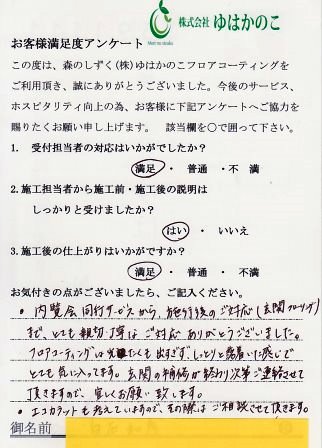 株式会社 ゆはかのこ
お客様満足度アンケート
この度は、森のしずく(株)ゆはかのこフロアコーティングを
ご利用頂き、誠にありがとうございました。今後のサービス、
ホスピタリティ向上の為、お客様に下記アンケートへご協力を
賜りたくお願い申し上げます。 該当欄を○で囲って下さい。
1. 受付担当者の対応はいかがでしたか?
満足 ・ 普通 ・ 不満
2.施工担当者から施工前・施工後の説明は
しっかりと受けましたか?
はい ・ いいえ
3.施工後の仕上がりはいかがですか?
満足 ・ 普通 ・ 不満
お気付きの点がございましたら、ご記入ください。
・内覧会同行サービスから施行後のご対応(玄関フローリング)
まで、とても親切丁寧なご対応ありがとうございました。
フロアコーティングは光沢も出すぎず、しっとりと落着いた感じで
とても気に入ってます。玄関の補修が終わり次第ご連絡させて
頂きますので、宜しくお願い致します。
・エコカラットも考えていますので、その際はご相談させて頂きます。
御名前